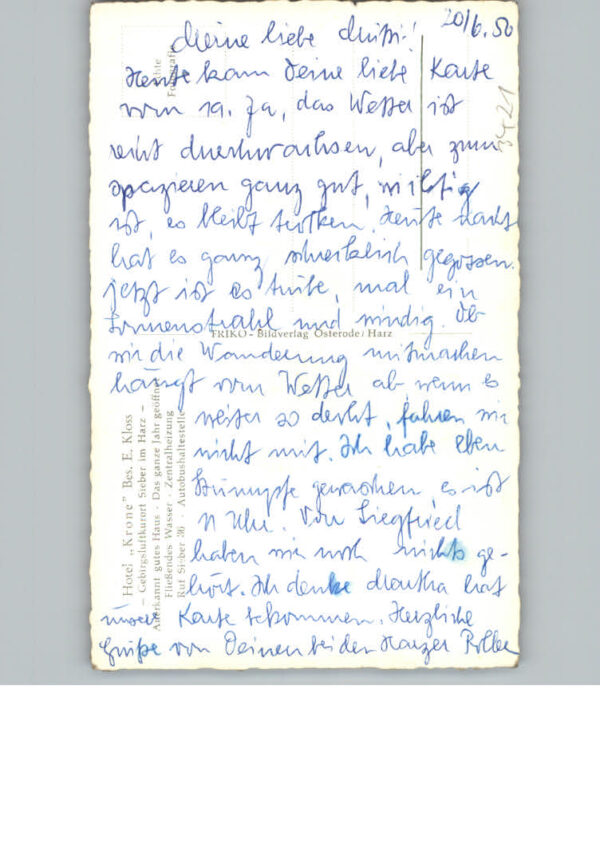 20/6. 50
Meine liebe Mutti!
Heute kam Deine liebe Karte
vom 19. Ja, das Wetter ist
recht durchwachsen, aber zum
spazieren ganz gut, wichtig
ist, es bleibt trocken. Heute nacht
hat es ganz schrecklich gegossen.
jetzt ist es trübe, mal ein
Sonnenstrahl und windig. Ob
wir die Wanderung mitmachen
hängt vom Wetter ab wenn es
weiter so, fahren wir
nicht mit. Ich habe eben
Strümpfe gewaschen, es ist
11 Uhr. Von Siegfried
haben wir noch nichts ge-
hört. Ich denke Martha hat
unsere Karte bekommen. Herzliche
Grüße von Deinen beiden Harzer
3421
Echte
Fotografie
FRIKO - Bildverlag Osterode/Harz
Hotel „Krone" Bes. E. Kloss
– Gebirgsluftkurort Sieber im Harz –
Anerkannt gutes Haus · Das ganze Jahr geöffnet
Fließendes Wasser · Zentralheizung
Ruf Sieber 36 · Autobushaltestelle